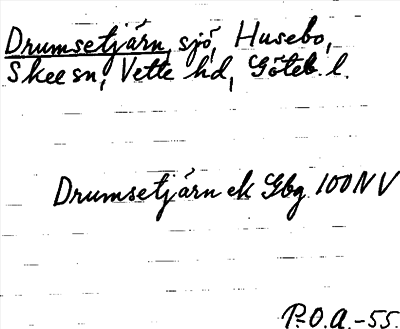 Drumsetjärn, sjö, Husebo,
Skee sn, Vette hd, Göteb. l.
Drumsetjärn ek Gbg 100 NV
P.O.A.-55.